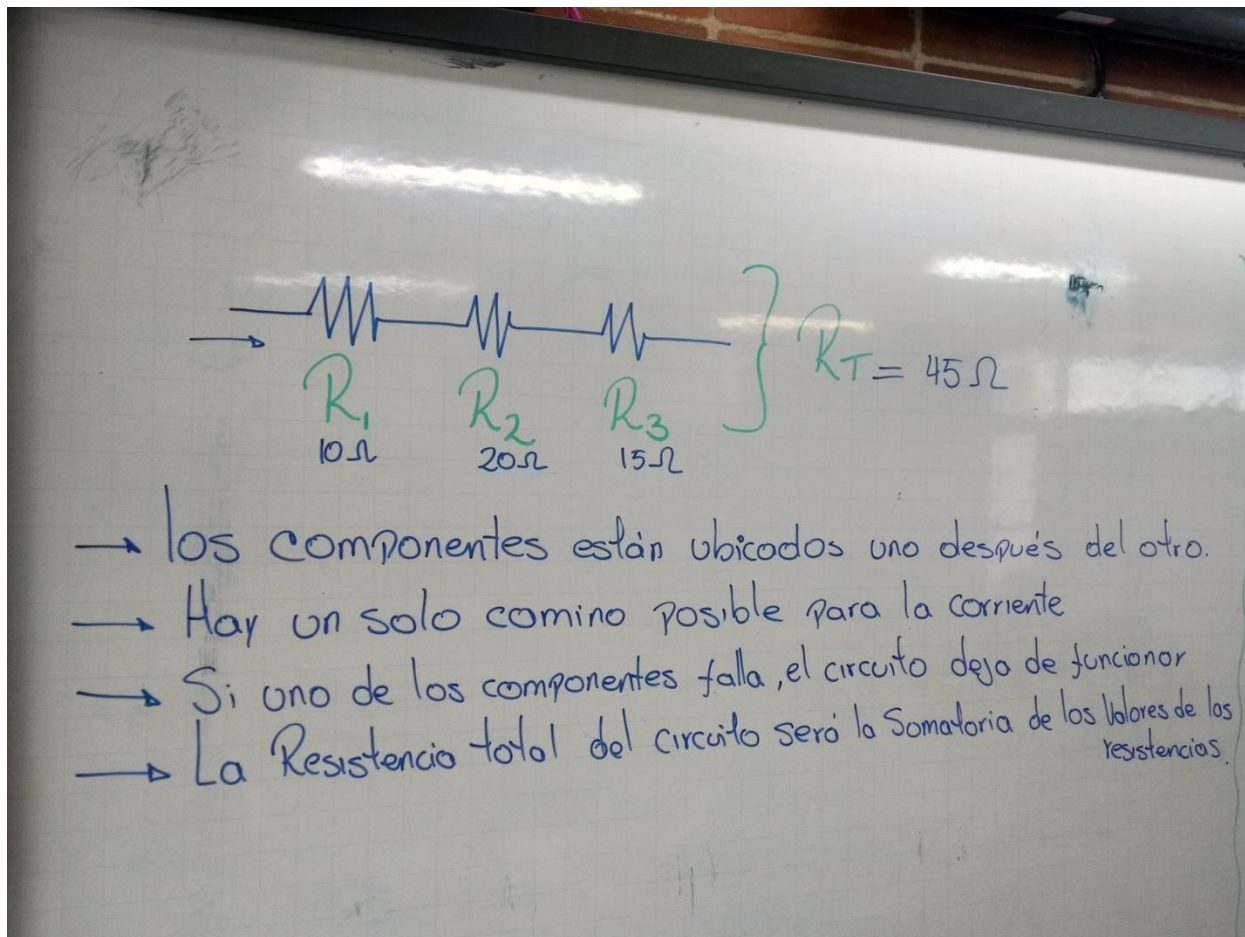 R1 R2 R3 } RT = 45Ω
10Ω 20Ω 15Ω
→ los componentes están ubicados uno después del otro.
→ Hay un solo camino posible para la corriente
→ Si uno de los componentes falla, el circuito deja de funcionar
→ La Resistencia total del circuito será la Somatoria de los Valores de las
resistencias.